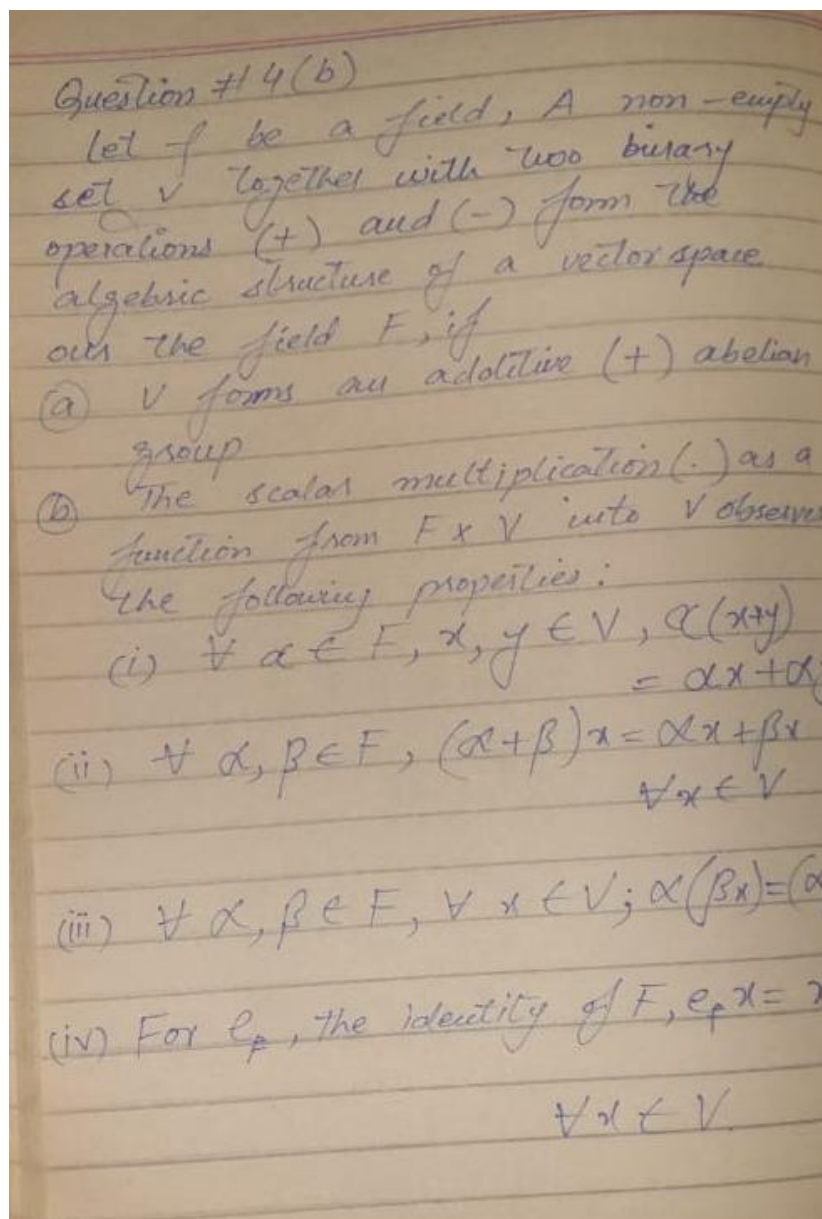 Question # 4 (b)
Let f be a field, A non-empty
set v together with two binary
operations (+) and (-) form the
algebric structure of a vector space
over the field F, if
(a) V forms an additive (+) abelian
group
(b) The scalar multiplication (.) as a
function from F x V into V observes
the following properties:
(i) ∀ α ∈ F, x, y ∈ V, α(x+y)
= αx + αy
(ii) ∀ α, β ∈ F, (α+β)x = αx + βx
∀x ∈ V
(iii) ∀ α, β ∈ F, ∀ x ∈ V; α(βx)=(α
(iv) For e_F, the identity of F, e_F x = x
∀x ∈ V.